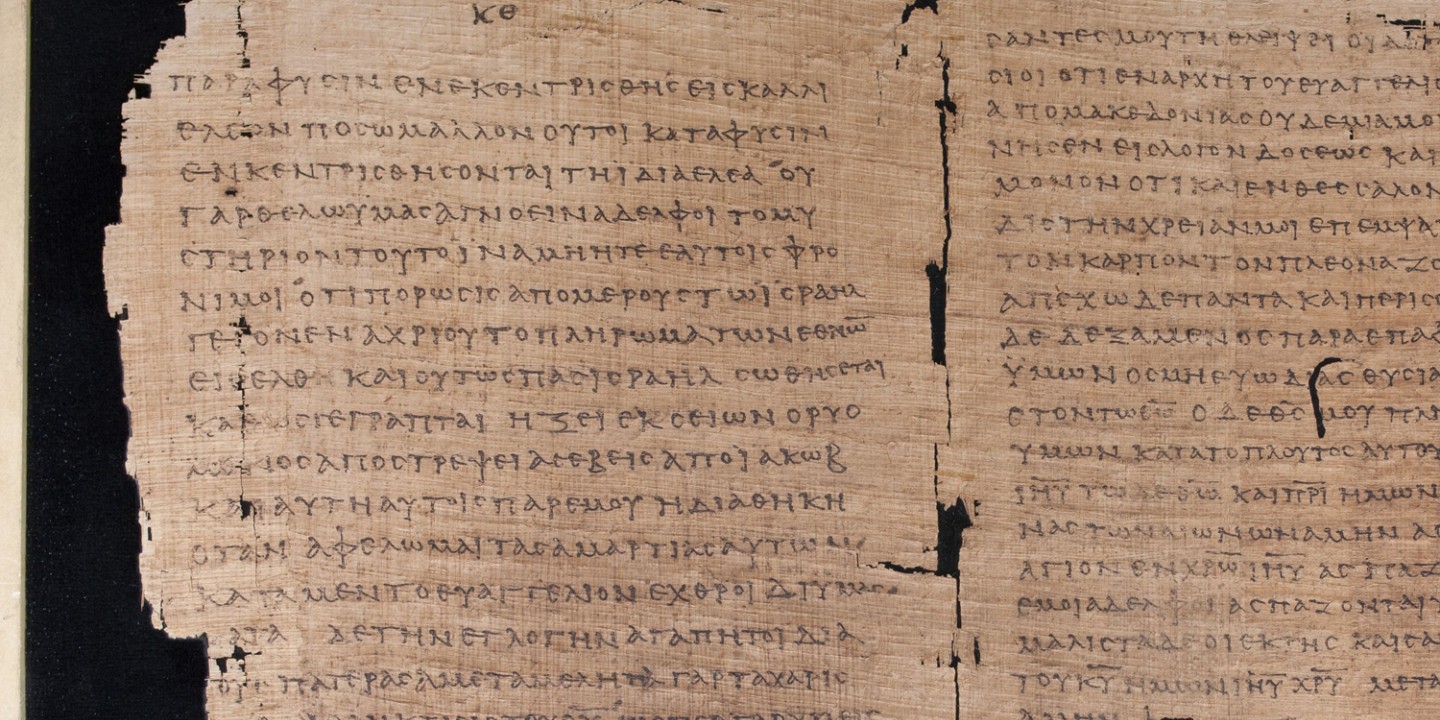 ΚΘ
ΠΑΡΑΦΥϹΙΝ ΕΝΕΚΕΝΤΡΙϹΘΗϹ ΕΙϹΚΑΛΛΙ
ΕΛΕΟΝ ΠΟϹΩΜΑΛΛΟΝ ΟΥΤΟΙ ΚΑΤΑΦΥϹΙΝ
ΕΝΚΕΝΤΡΙϹΘΗϹΟΝΤΑΙ ΤΗΙΔΙΑΕΛΕΑ ΟΥ
ΓΑΡΘΕΛΩΫΜΑϹΑΓΝΟΕΙΝΑΔΕΛΦΟΙ ΤΟΜΥ
ϹΤΗΡΙΟΝΤΟΥΤΟΙΝΑΜΗΗΤΕΕΑΥΤΟΙϹ ΦΡΟ
ΝΙΜΟΙ ΟΤΙΠΟΡΩϹΙϹΑΠΟΜΕΡΟΥϹΤΩΙϹΡΑΗΛ
ΓΕΓΟΝΕΝ ΑΧΡΙΟΥΤΟΠΛΗΡΩΜΑΤΩΝΕΘΝΩ̅
ΕΙϹΕΛΘ ΚΑΙΟΥΤΩϹΠΑϹΙϹΡΑΗΛ ϹΩΘΗϹΕΤΑΙ
ΚΑΘΩϹΓΕΓΡΑΠΤΑΙ ΗΞΕΙ ΕΚ ϹΕΙΩΝ ΟΡΥΟ
ΜΕΝΟϹΑΠΟϹΤΡΕΨΕΙ ΑϹΕΒΕΙϹ ΑΠΟΙΑΚΩΒ
ΚΑΙ ΑΥΤΗΑΥΤΟΙϹΠΑΡΕΜΟΥ ΗΔΙΑΘΗΚΗ
ΟΤΑΝ ΑΦΕΛΩΜΑΙ ΤΑϹΑΜΑΡΤΙΑϹΑΥΤΩΝ
ΚΑΤΑΜΕΝΤΟΕΥΑΓΓΕΛΙΟΝ ΕΧΘΡΟΙ ΔΙΥΜΑϹ
ΚΑΤΑ ΔΕΤΗΝΕΓΛΟΓΗΝ ΑΓΑΠΗΤΟΙ ΔΙΑ
ΤΟΥϹ ΠΑΤΕΡΑϹ ΑΜΕΤΑΜΕΛΗΤΑ ΓΑΡΤΑΧΑΡΙϹ
ϹΑΝΤΕϹΜΟΥΤΗ ΘΛΕΙΨΕΙ
ϹΙΟΙ ΟΤΙΕΝΑΡΧΗ ΤΟΥΕΥΑΓΓΕΛΙΟ
ΑΠΟΜΑΚΕΔΟΝΙΑϹ ΟΥΔΕΜΙΑΜΟ
ΝΗϹΕΝ ΕΙϹΛΟΓΟΝ ΔΟϹΕΩϹ ΚΑΙ
ΜΟΝΟΝ ΟΤΙ ΚΑΙΕΝΘΕϹϹΑΛΟΝ
ΔΙϹΤΗΝΧΡΕΙΑΝΜΟΙ ΕΠΕΜΨΑ
ΤΟΝΚΑΡΠΟΝΤΟΝΠΛΕΟΝΑΖΟ
ΑΠΕΧΩΔΕΠΑΝΤΑ ΚΑΙΠΕΡΙϹ
ΔΕ ΔΕΞΑΜΕΝΟϹΠΑΡΑΕΠΑΦ
ΫΜΩΝ ΟϹΜΗΕΥΩΔΙΑϹ ΘΥϹΙΑ
ΕϹΤΟΝΤΩΘ̅Ω̅ Ο ΔΕΘ̅Ϲ̅ ΜΟΥ ΠΛΗ
ΥΜΩΝ ΚΑΤΑΤΟΠΛΟΥΤΟϹΑΥΤΟΥ
Ι̅Η̅Υ̅ ΤΩΔΕΘ̅Ω̅ ΚΑΙΠ̅Ρ̅Ι̅ ΗΜΩΝ
ΝΑϹΤΩΝΑΙΩΝΩΝΑΜΗΝ ΑϹ
ΑΓΙΟΝ ΕΝΧ̅Ρ̅Ω̅ Ι̅Η̅Υ̅ ΑϹΠΑΖ
ΕΜΟΙΑΔΕΛΦΟΙ ΑϹΠΑΖΟΝΤΑΙΥ
ΜΑΛΙϹΤΑΔΕΟΙΕΚΤΗϹ ΚΑΙϹΑ
ΤΟΥΚ̅Υ̅ ΗΜΩΝΙ̅Η̅Υ̅ Χ̅Ρ̅Υ̅ ΜΕΤΑ